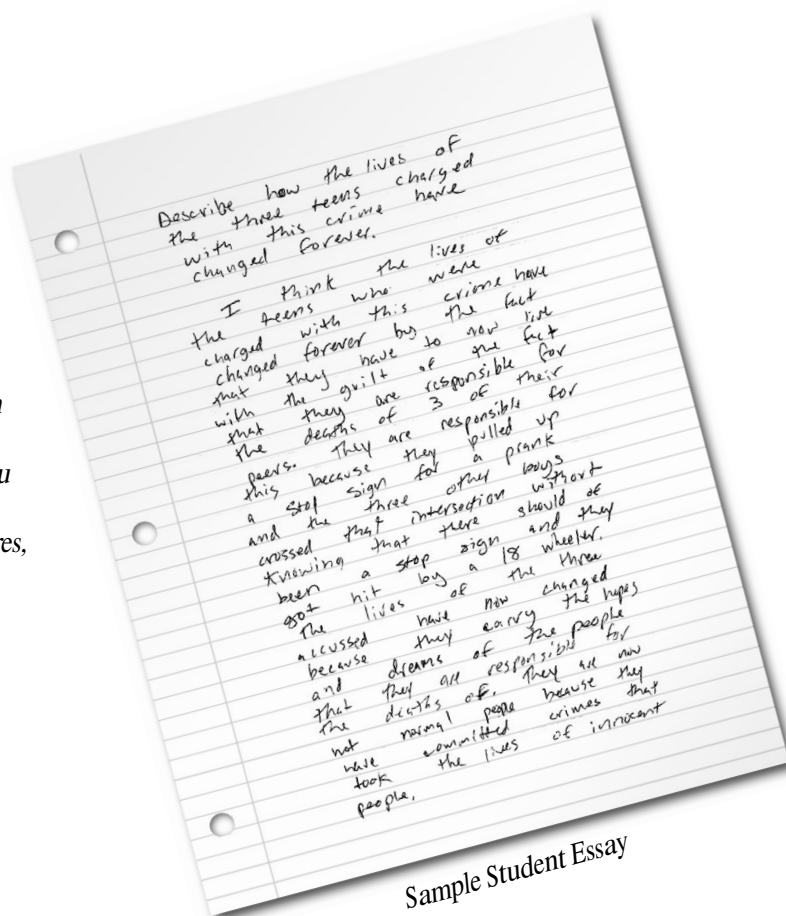 u
res,
Describe how the lives of
the three teens charged
with this crime have
changed forever.
I think the lives of
the teens who were
charged with this crime have
changed forever by the fact
that they have to now live
with the guilt of the fact
that they are responsible for
the deaths of 3 of their
peers. They are responsible for
this because they pulled up
a stop sign for a prank
and the three other boys
crossed that intersection without
knowing that there should of
been a stop sign and they
got hit by a 18 wheeler.
The lives of the three
accussed have now changed
because they carry the hopes
and dreams of the people
that they are responsible for
the deaths of. They are now
not normal peope because they
have committed crimes that
took the lives of innocent
people.
Sample Student Essay